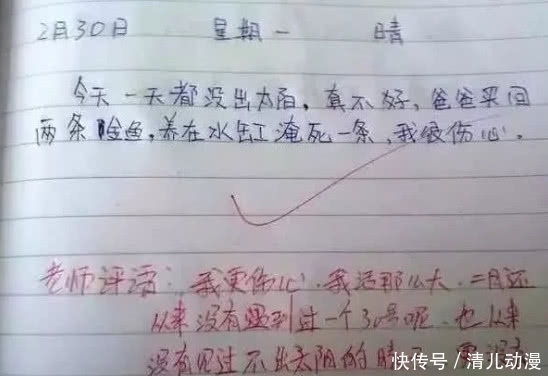 2月30日 星期一 晴
今天一天都没出太阳，真不好，爸爸买回
两条鱼，养在水缸淹死一条，我很伤心。
老师评语：我更伤心．我活那么大．二月还
从来没有遇到过一个30号呢．也从来
没有见过不出太阳的晴
快传号／清儿动漫